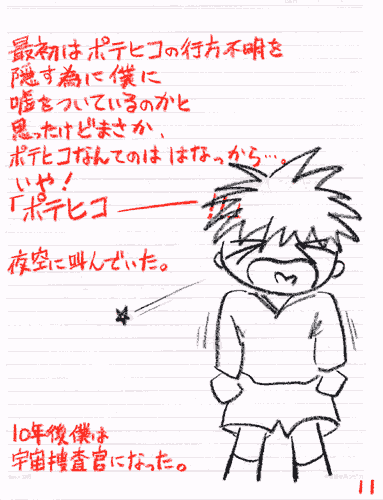 最初はポテヒコの行方不明を
隠す為に僕に
嘘をついているのかと
思ったけどまさか、
ポテヒコなんてのは はなっから…。
いや！
「ポテヒコ――!!」
夜空に叫んでいた。
10年後僕は
宇宙捜査官になった。
11